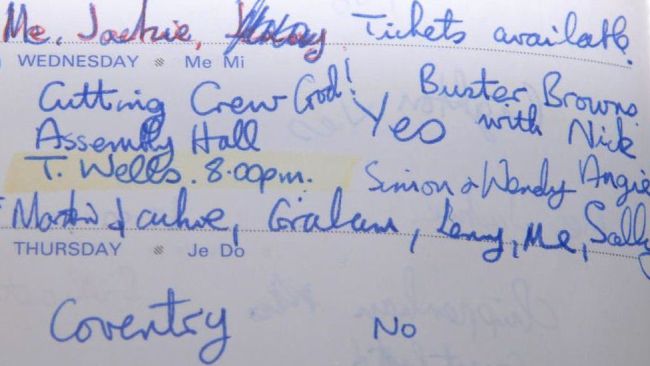 Me, Jackie, Tickets available.
WEDNESDAY Me Mi
Cutting Crew God! Yes Buster Browns
Assembly Hall with Nick
T. Wells. 8.00pm. Simon & Wendy Angie
Martin Jackie, Graham, Lenny, Me, Sally
THURSDAY Je Do
Coventry No